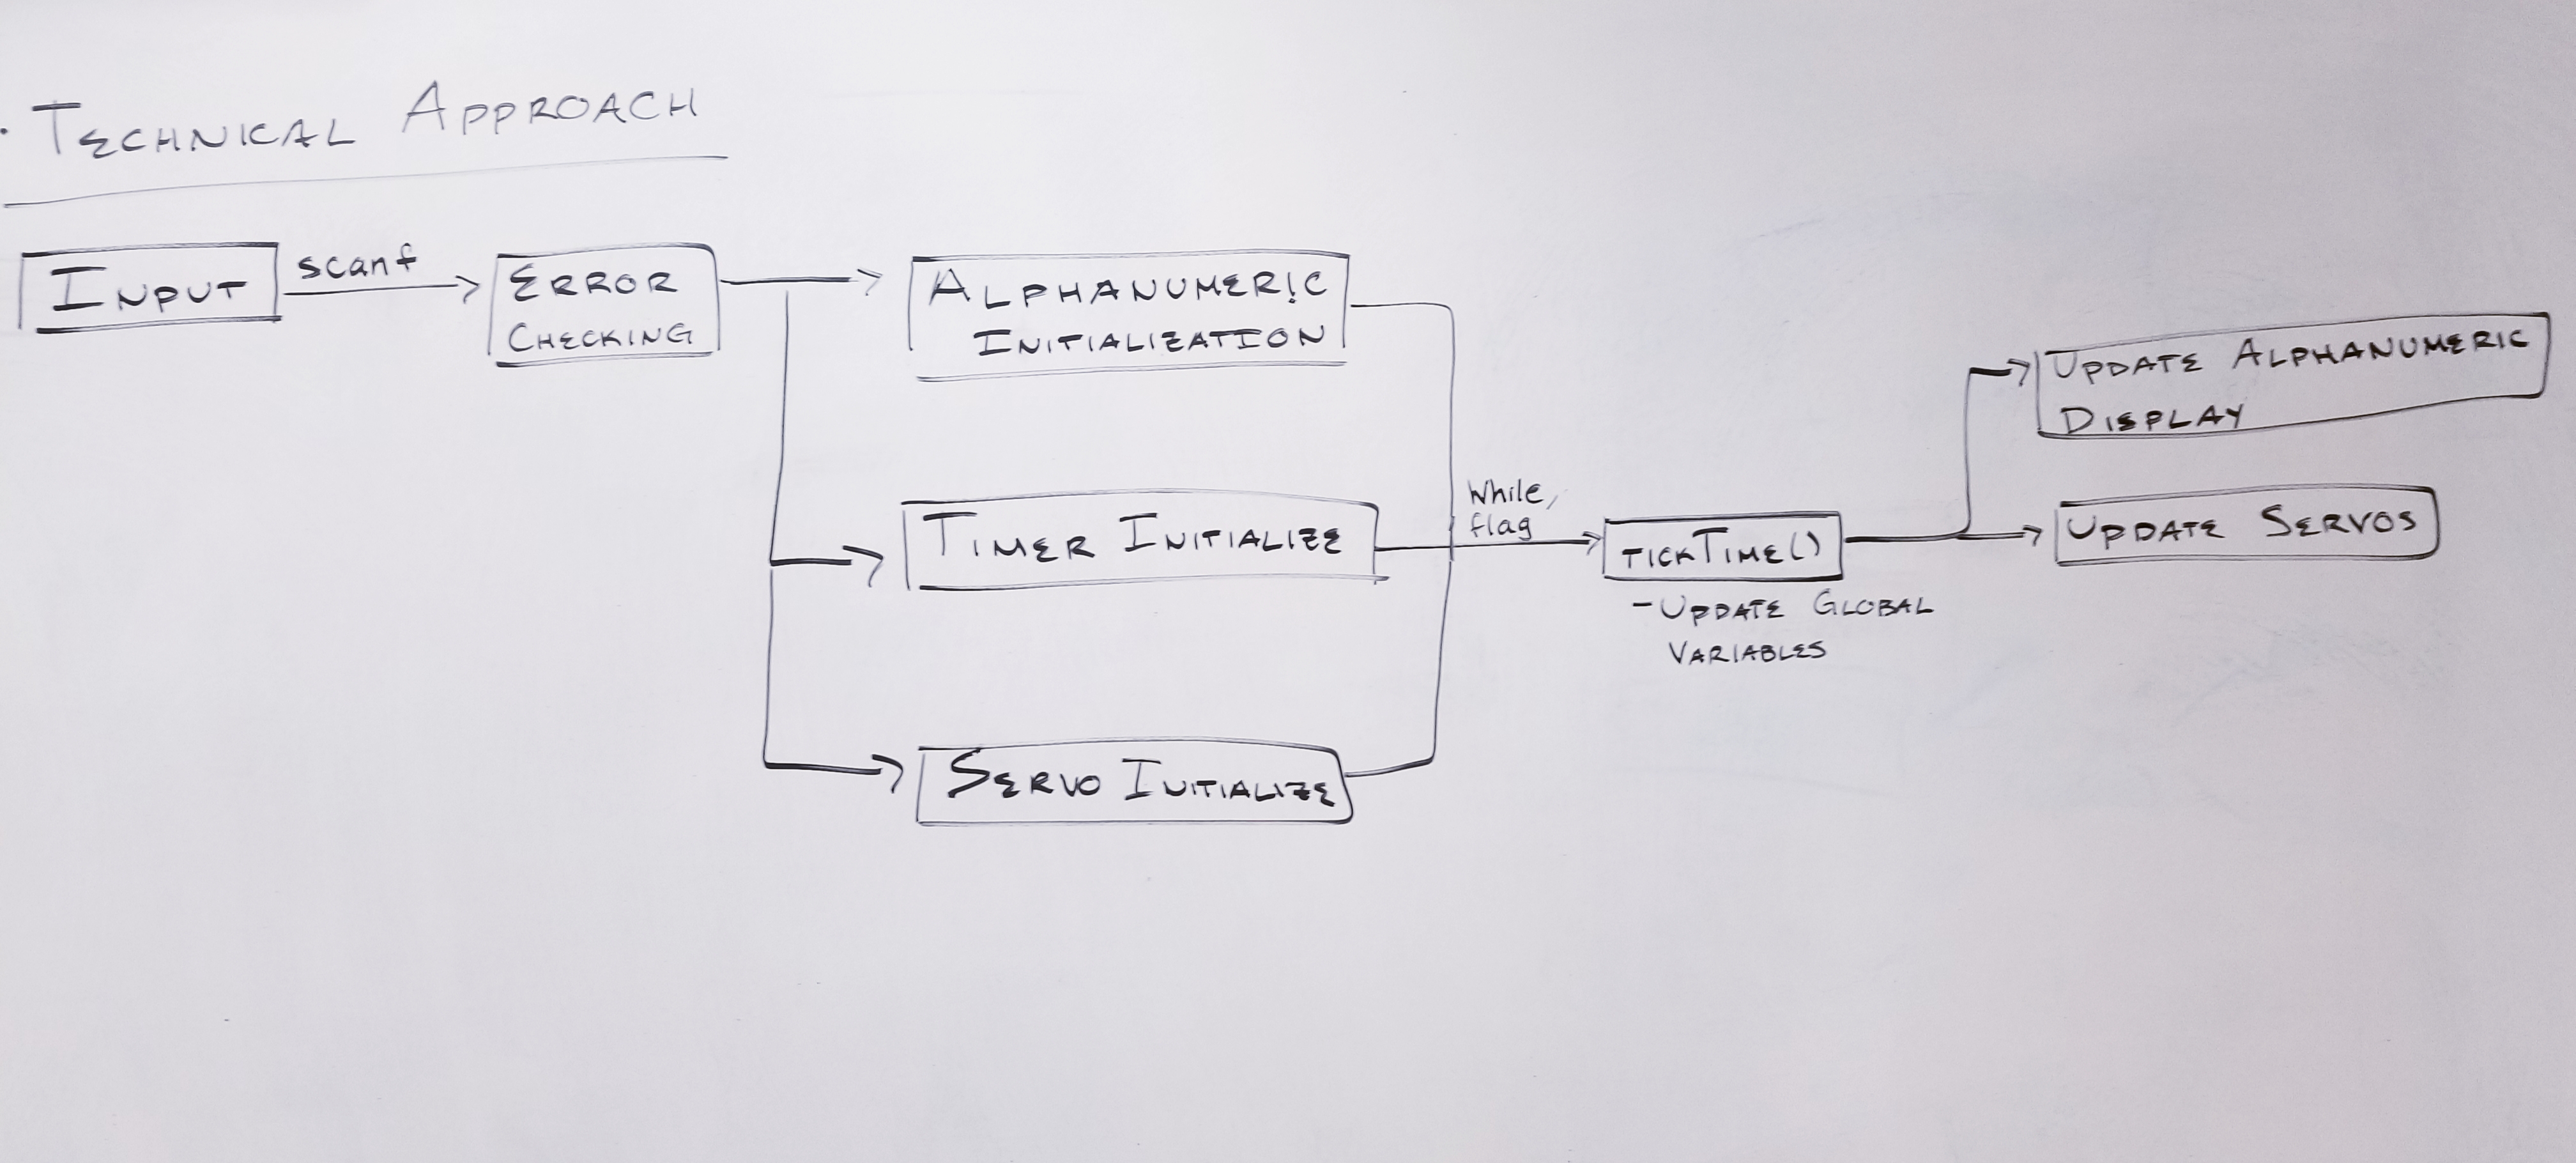 · TECHNICAL APPROACH
INPUT
scanf
ERROR
CHECKING
ALPHANUMERIC
INITIALIZATION
TIMER INITIALIZE
SERVO INITIALIZE
while,
flag
TICKTIME()
- UPDATE GLOBAL
VARIABLES
UPDATE ALPHANUMERIC
DISPLAY
UPDATE SERVOS